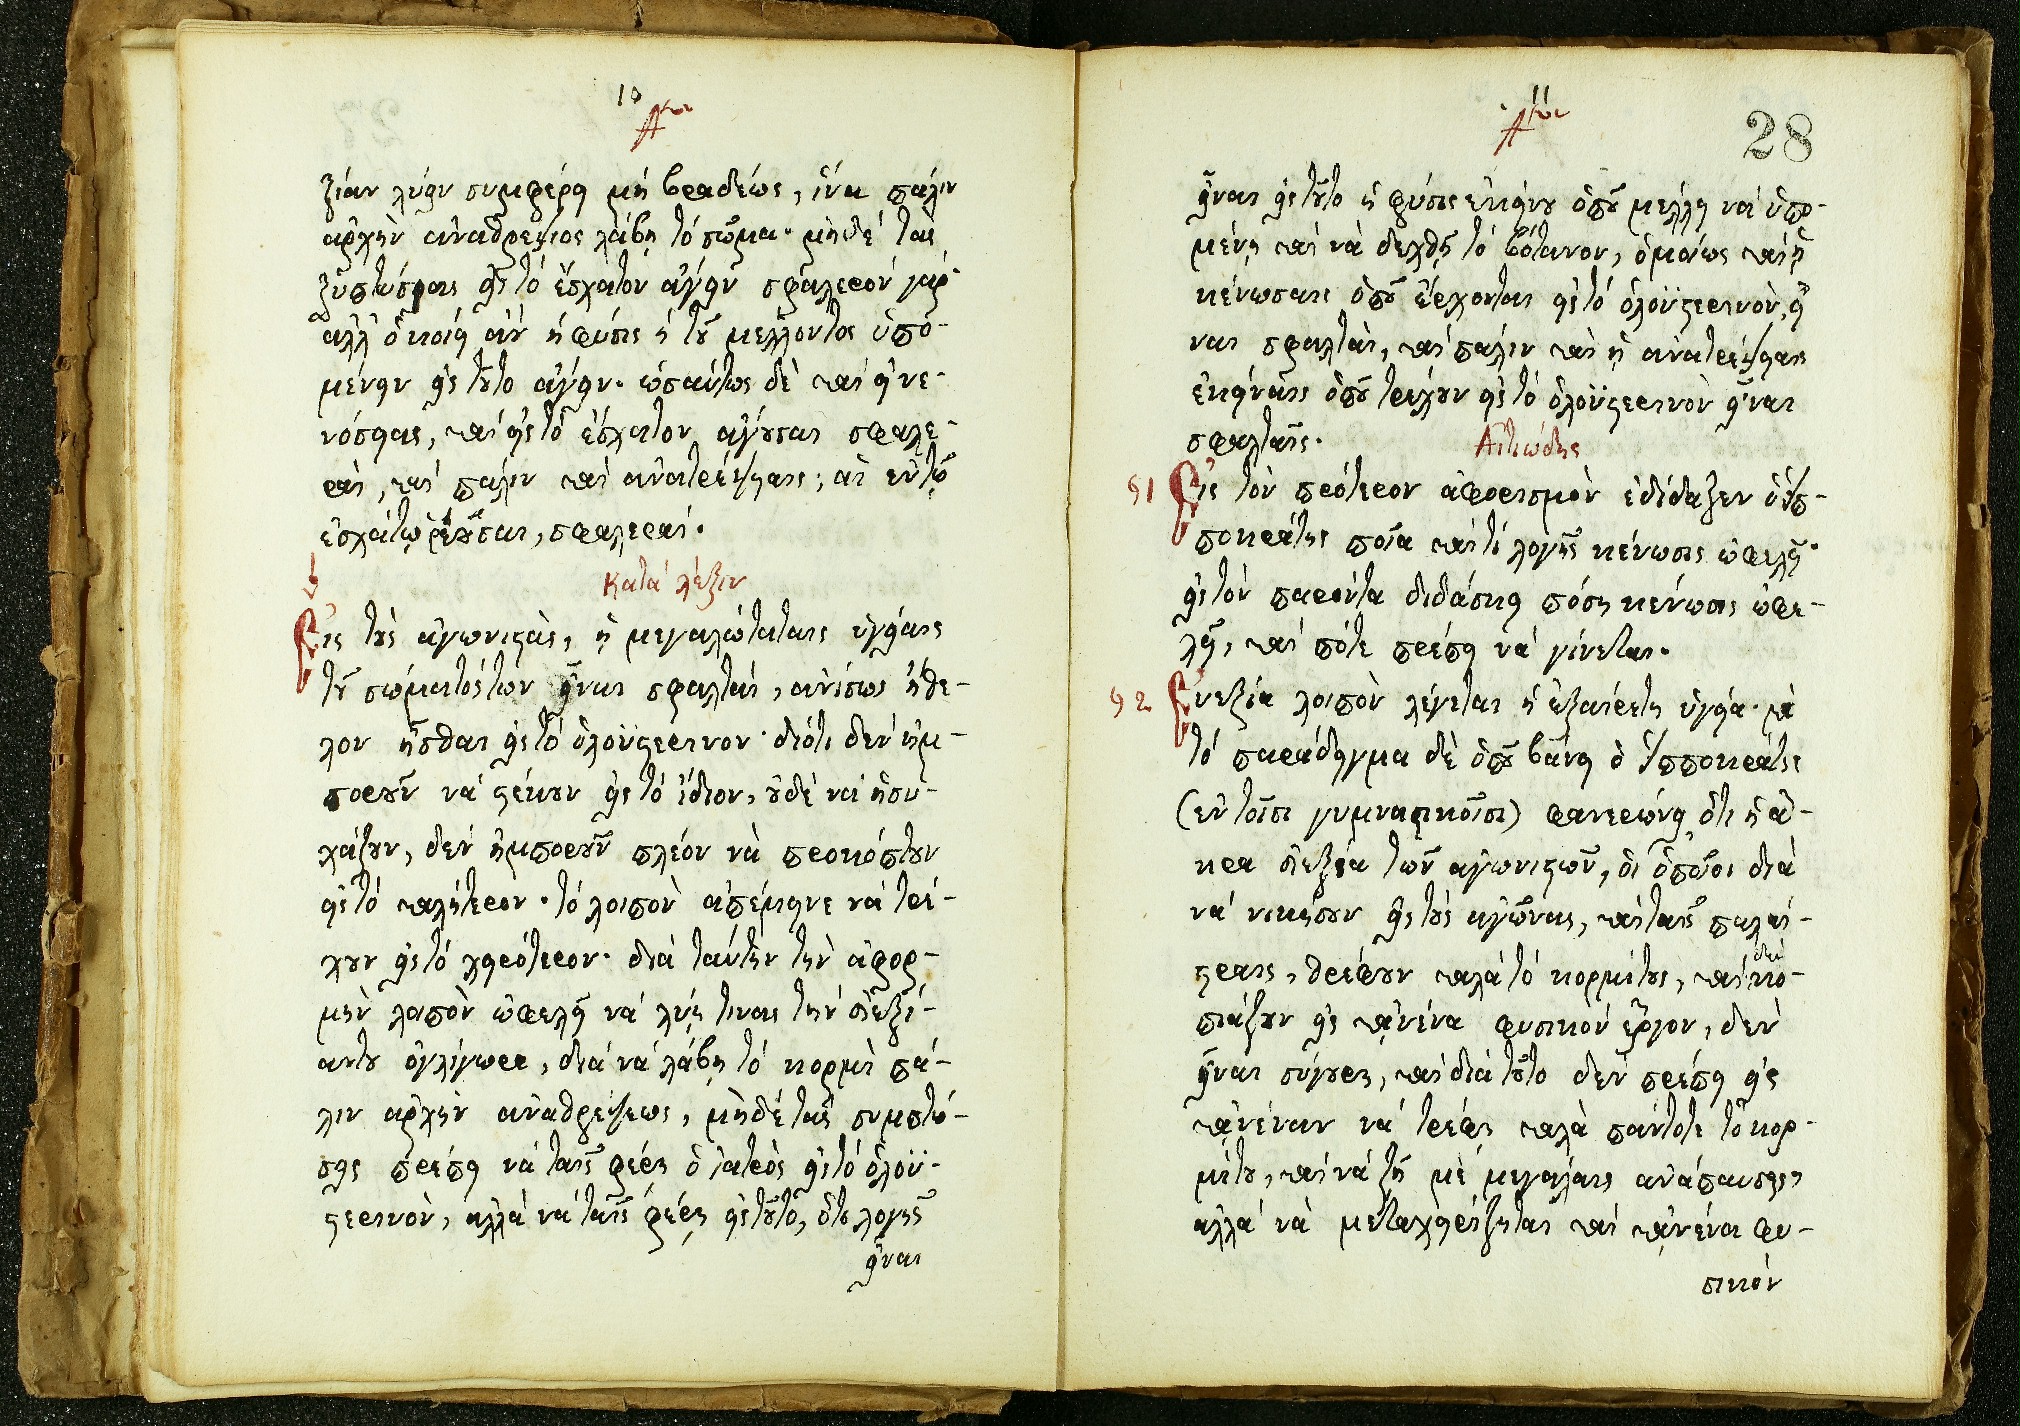 10
Α<sup>ον</sup>
ξίαν λύειν συμφέρει μὴ βραδέως, ἵνα πάλιν
ἀρχὴν ἀναθρέψιος λάβῃ τὸ σῶμα· μηδὲ τὰς
ξυμπτώσιας εἰς τὸ ἔσχατον ἄγειν σφαλερὸν γάρ·
ἀλλ' ὁκοίη ἂν ἡ φύσις ᾖ τοῦ μέλλοντος ὑπο-
μένειν εἰς τοῦτο ἄγειν· ὡσαύτως δὲ καὶ αἱ κε-
νώσιες, καὶ εἰς τὸ ἔσχατον ἄγουσαι σφαλε-
ραὶ, καὶ πάλιν καὶ ἀνατρέψιαις, αἱ ἐν τῷ
ἐσχάτῳ ἐοῦσαι, σφαλεραί.
Κατὰ λέξιν
Εἰς τοὺς ἀγωνιστὰς, ἡ μεγαλώταταις ὑγείαις
τοῦ σώματός των εἶναι σφαλταί, ἀνίσως ἤθε-
λον ἦσθαι εἰς τὸ ὁλοΰστερινον· διότι δὲν ἠμ-
ποροῦν νὰ στέκουν εἰς τὸ ἴδιον, οὐδὲ νὰ ἡσυ-
χάζουν, δὲν ἠμποροῦν πλέον νὰ προκόπτουν
εἰς τὸ καλήτερον· τὸ λοιπὸν ἀπέμεινε νὰ τρέ-
χουν εἰς τὸ χειρότερον· διὰ ταύτην τὴν ἀφορ-
μὴν λοιπὸν ὠφελεῖ νὰ λύῃ τινὰς τὴν εὐεξί-
αν του ὀγλίγωρα, διὰ νὰ λάβῃ τὸ κορμὶ πά-
λιν ἀρχὴν ἀναθρέψεως, μηδὲ ταῖς συμπτώ-
σεις πρέπει νὰ ταῖς φέρῃ ὁ ἰατρὸς εἰς τὸ ὁλοΰ-
στερινὸν, ἀλλὰ νὰ ταῖς φέρῃ εἰς τοῦτο, ὅτι λογῆς
εἶναι
11
Α<sup>ον</sup>
28
εἶναι εἰς τοῦτο ἡ φύσις ἐκείνου ὁποῦ μέλλει νὰ ὑπο-
μένῃ καὶ νὰ δεχθῇ τὸ βότανον, ὁμοίως καὶ ᾑ
κένωσαις ὁποῦ ἔρχονται εἰς τὸ ὁλοΰστερινὸν, εἶ-
ναι σφαλταὶ, καὶ πάλιν καὶ ᾑ ἀνατρέψαις
ἐκείναις ὁποῦ τρέχουν εἰς τὸ ὁλοΰστερινὸν εἶναι
σφαλταῖς.
Αἰτιώδης
51 Εἰς τὸν πρότερον ἀφορισμὸν ἐδίδαξεν ὁ Ἱπ-
ποκράτης ποῖα καὶ τὶ λογῆς κένωσις ὠφελεῖ·
εἰς τὸν παρόντα διδάσκει πόση κένωσις ὠφε-
λεῖ, καὶ πότε πρέπει νὰ γίνεται.
52 Εὐεξία λοιπὸν λέγεται ἡ ἐξαίρετη ὑγεία· καὶ
τὸ παράδειγμα δὲ ὁποῦ βάνει ὁ Ἱπποκράτης
(ἐν τοῖσι γυμναστικοῖσι) φανερώνει ὅτι ἡ ἄ-
κρα εὐεξία τῶν ἀγωνιστῶν, οἱ ὁποῖοι διὰ
νὰ νικήσουν εἰς τοὺς ἀγῶνας, καὶ ταῖς παλαί-
στραις, θρέφουν καλὰ τὸ κορμί τους, καὶ δὲν κο-
πιάζουν εἰς κανένα φυσικὸν ἔργον, δὲν
εἶναι σίγουρη, καὶ διὰ τοῦτο δὲν πρέπει εἰς
κανέναν νὰ τρέφῃ καλὰ πάντοτε τὸ κορ-
μί του, καὶ νὰ ζῇ μὲ μεγάλαις ἀνάπαυσες,
ἀλλὰ νὰ μεταχειρίζηται καὶ κανένα φυ-
σικὸν